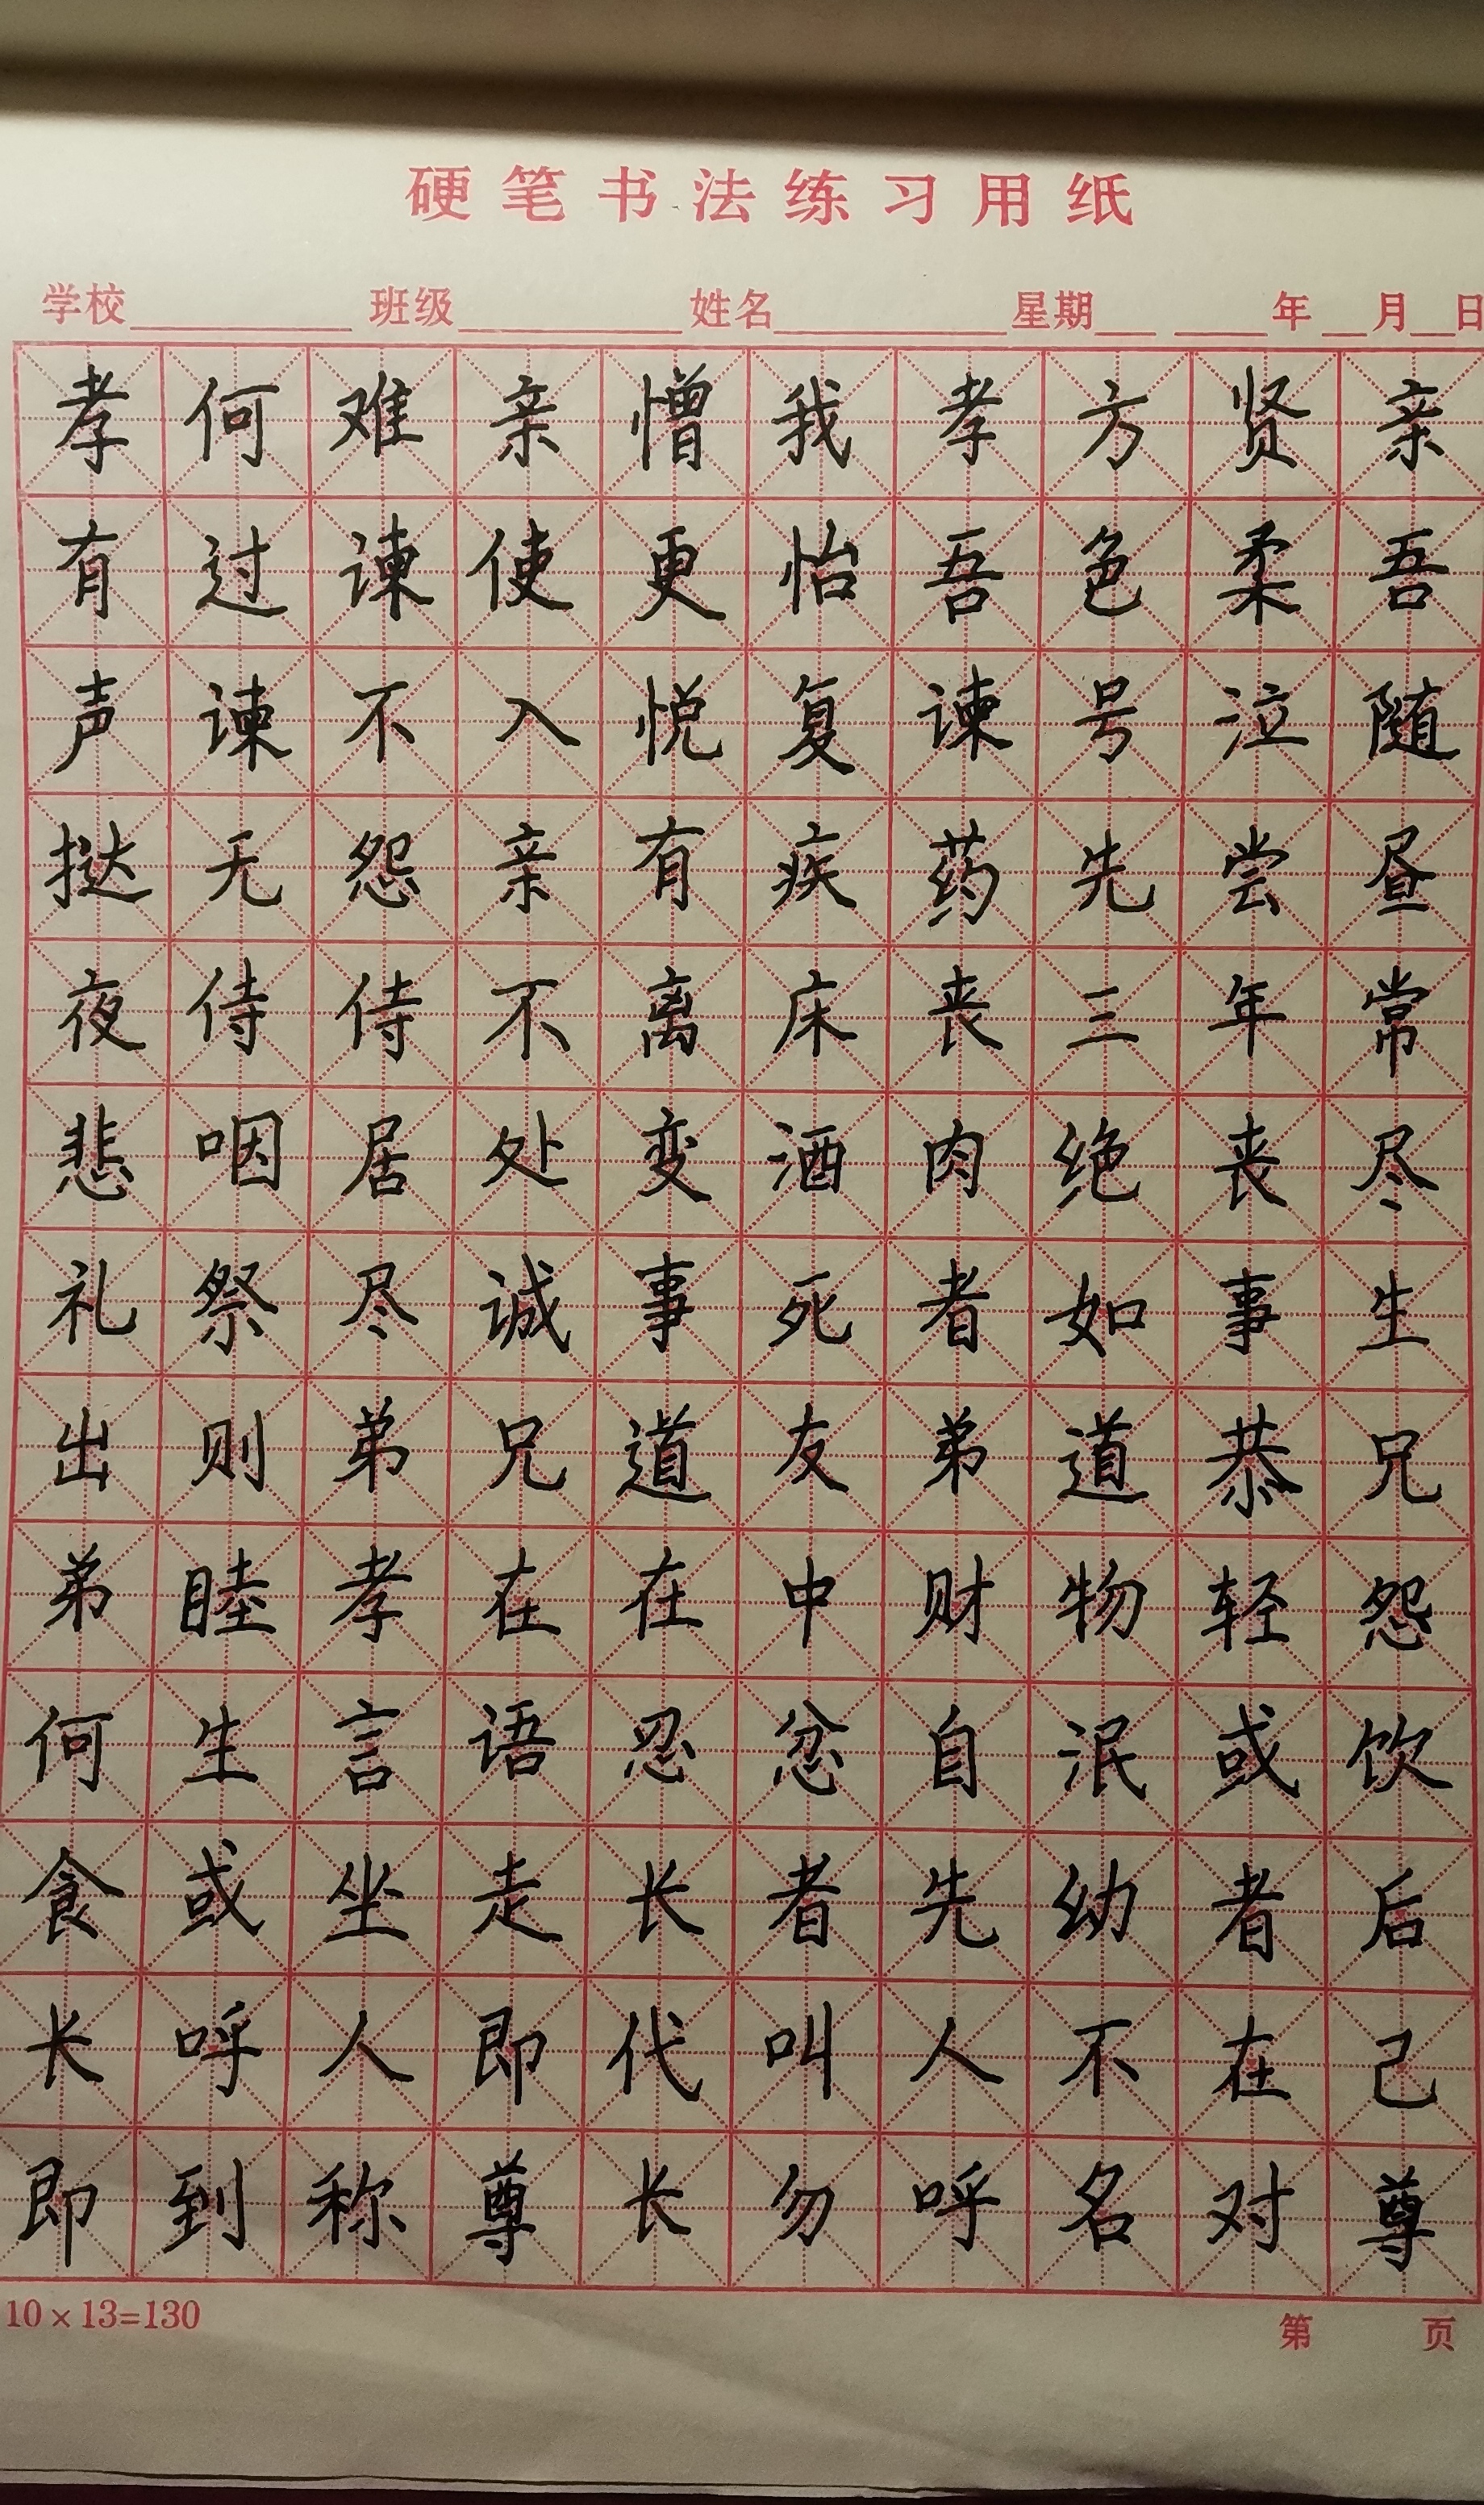 硬笔书法练习用纸
学校 班级 姓名 星期 年 月 日
孝何难亲憎我孝方贤亲
有过谏使更怡吾色柔吾
声谏不入悦复谏号泣随
挞无怨亲有疾药先尝昼
夜侍侍不离床丧三年常
悲咽居处变酒肉绝丧尽
礼祭尽诚事死者如事生
出则弟兄道友弟道恭兄
弟睦孝在在中财物轻怨
何生言语忍忿自泯或饮
食或坐走长者先幼者后
长呼人即代叫人不在己
即到称尊长勿呼名对尊
10×13=130
第 页